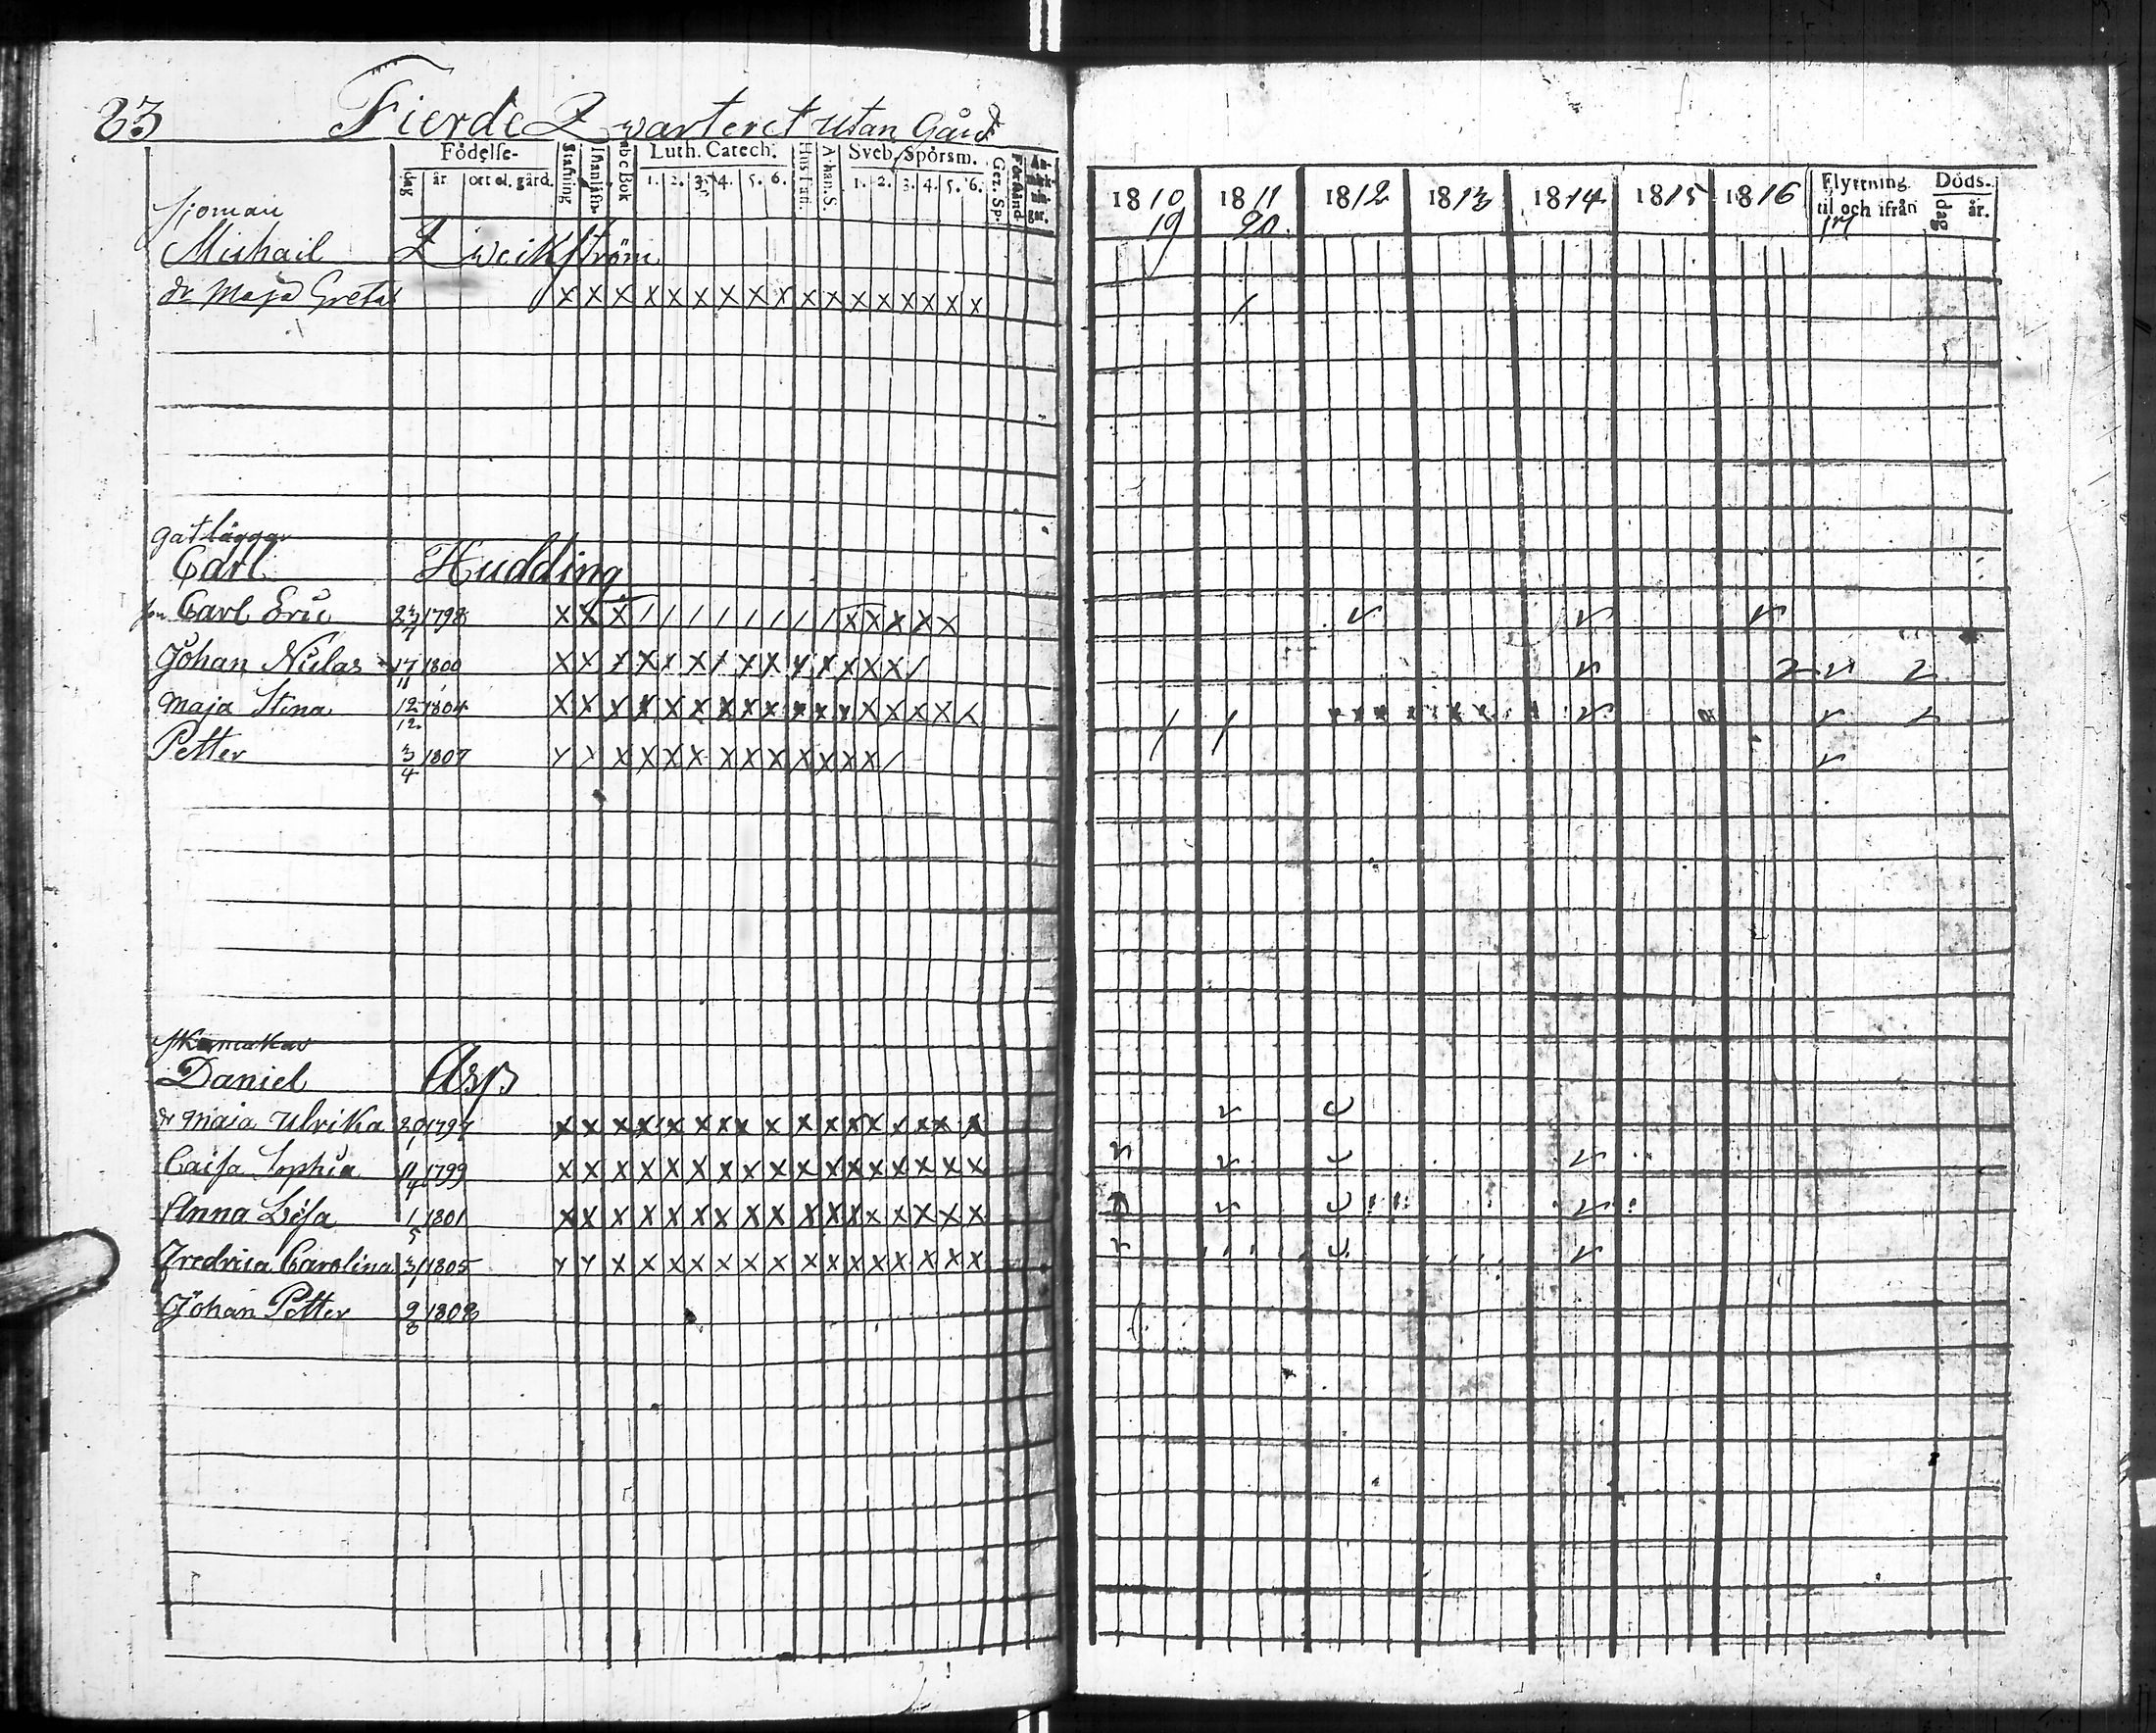 23 Fierde Qwarteret utan Gård
Födelse- Stafning Innanläsn. abc Bok Luth. Catech. Hus Tafl. Athan. S. Sveb. Spörsm. Gez. Sp. Förstånd An-märk-nin-gar.
dag år ort ol. gård. 1. 2. 3. 4. 5. 6. 1. 2. 3. 4. 5. 6.
Sjöman
Michail Qweikström
dr Maja Greta x x x x x x x x x x x x x x x x x
gatläggar
Carl Hudding
son Carl Eric 23/7 1798
Johan Niclas 17/11 1800
Maja Stina 12/12 1804
Petter 3/4 1807
Skomakar
Daniel Asp
dr Maja Ulrika 20/1 1797
Caisa Sophia 11/4 1799
Anna Lisa 1/5 1801
Fredrica Carolina 31/1 1805
Johan Petter 9/8 1808
1810 1811 1812 1813 1814 1815 1816 Flyttning til och ifrån Döds-
dag år.
19 20 17